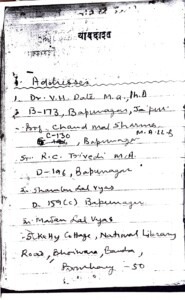 याददाश्त
Addresses
1. Dr. V.H. Date M.A., Ph.D
B-173, Bapunagar, Jaipur
Prof. Chand Mal Sharma
M.A. LL.B
C-130
Bapunagar
R.C. Trivedi M.A
D-196, Bapunagar
Lal Vyas
D. 159(C) Bapunagar
Madan Lal Vyas
College, National Library
Road, Bandra,
Bombay - 50